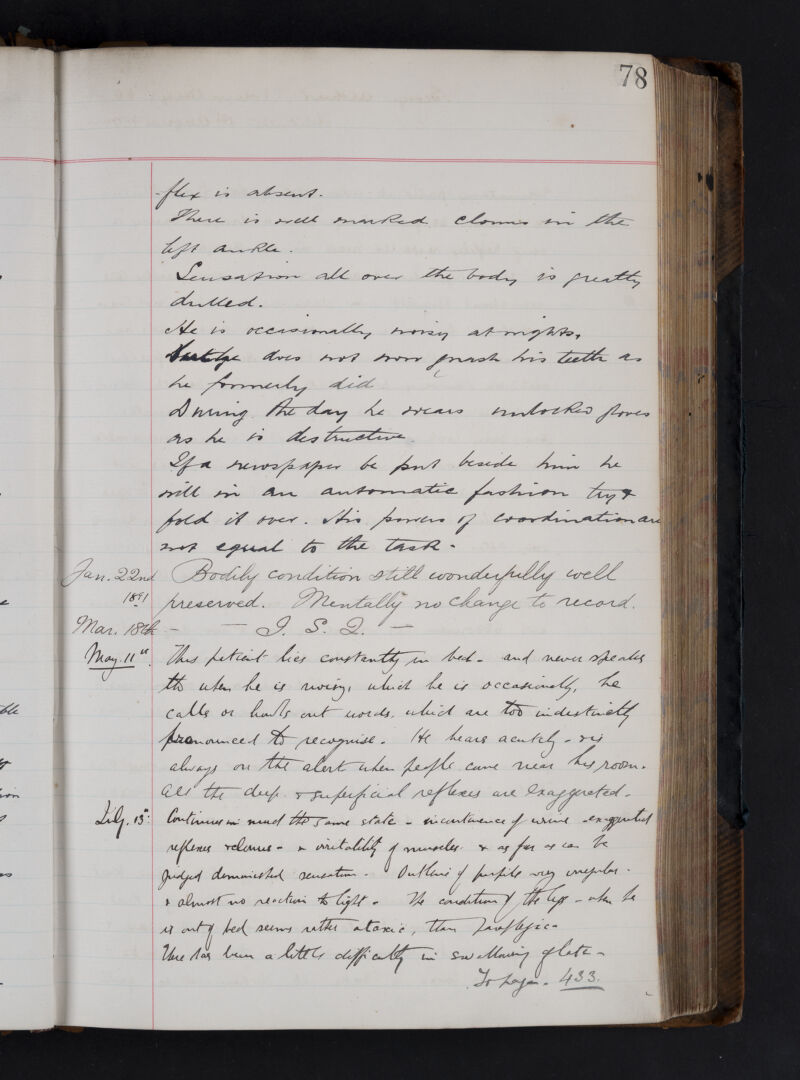 78
flex is absent.
There is well marked clonus in the
left ankle.
Sensation all over the body is greatly
dulled.
He is occasionally noisy at nights,
but he does not now gnash his teeth as
he formerly did
During the day he wears unlocked gloves
as he is destructive.
If a newspaper be put beside him he
will in an automatic fashion try &
fold it over. His powers of coordination are
not equal to the task.
Jan. 22nd Bodily condition still wonderfully well
1891 preserved. Mentally no change to record.
Mar. 18th - — I. S. Q. —
May. 11th. This patient lies constantly in bed - and never speaks
tho when he is noisy, which he is occasionally, he
calls or howls out words, which are too indistinctly
pronounced to recognise. He hears acutely - & is
always on the alert when people come near his room.
All the deep & superficial reflexes are exaggerated -
July. 13th: Continues in much the same state - incontinence of urine - exaggerated
reflexes & clonus - & irritability of muscles & as far as can be
judged diminished sensation. Outline of pupils very irregular.
& almost no reaction to light. The condition of the legs - when he
is out of bed seems rather ataxic, than paraplegic -
There has been a little difficulty in swallowing of late -
To page. 433.